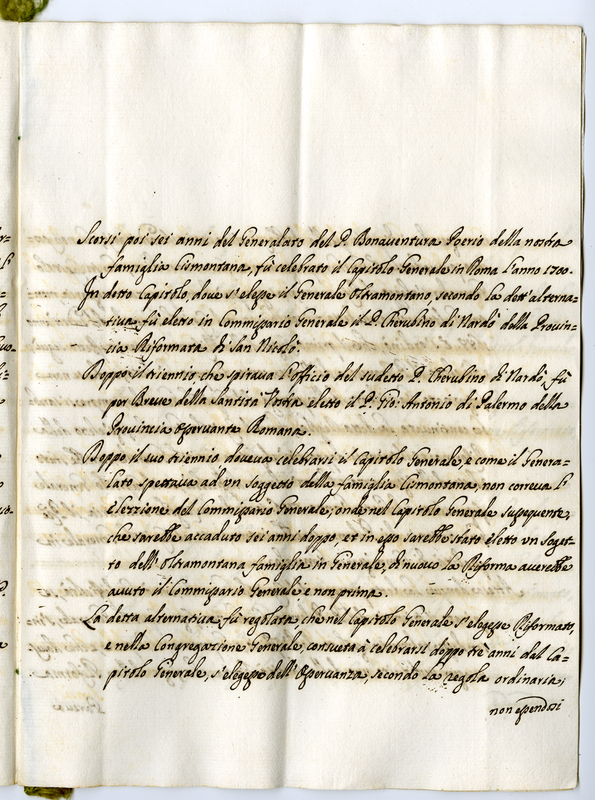 Scorsi poi sei anni del Generalato del P. Bonaventura Poerio della nostra
famiglia Cismontana, fù celebrato il Capitolo Generale in Roma l'anno 1700.
In detto Capitolo dove s'elesse il Generale Oltramontano, secondo la dett'alterna=
tiva fù eletto in Commissario Generale il P. Cherubino di Nardò della Provin=
cia Riformata di San Nicolò.
Doppo il triennio, che spirava l'officio del sudetto P. Cherubino di Nardò, fù
per Breve della Santità Vostra eletto il P. Gio: Antonio di Palermo della
Provincia Osservante Romana.
Doppo il suo triennio doveva celebrarsi il Capitolo Generale, e come il Genera=
lato spettava ad un soggetto della famiglia Cismontana, non correva l'
elezzione del Commissario Generale; onde nel Capitolo Generale susseguente,
che sarebbe accaduto sei anni doppo, et in esso sarebbe stato eletto un Sogget=
to dell'Oltramontana famiglia in Generale, di nuovo la Riforma averebbe
avuto il Commissario Generale, e non prima.
La detta alternativa fù regolata, che nel Capitolo Generale s'elegesse Riformato,
e nella Congregazione Generale, consueta à celebrarsi doppo trè anni del Ca=
pitolo Generale, s'elegesse dell'Osservanza, secondo la regola ordinaria;
non essendosi